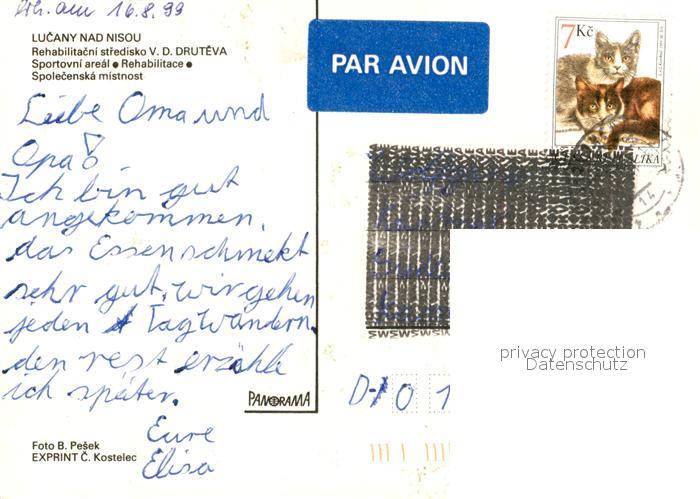 am 16.8.99
LUČANY NAD NISOU
Rehabilitační středisko V. D. DRUTĚVA
Sportovní areál ● Rehabilitace ●
Společenská místnost
PAR AVION
7 Kč
Liebe Oma und
Opa!
Ich bin gut
angekommen,
das Essen schmekt
sehr gut, wir gehen
jeden Tag Wandern.
den rest erzähle
ich später.
Eure
Elisa
PANORAMA
Foto B. Pešek
EXPRINT Č. Kostelec
D- 0 1
privacy protection
Datenschutz